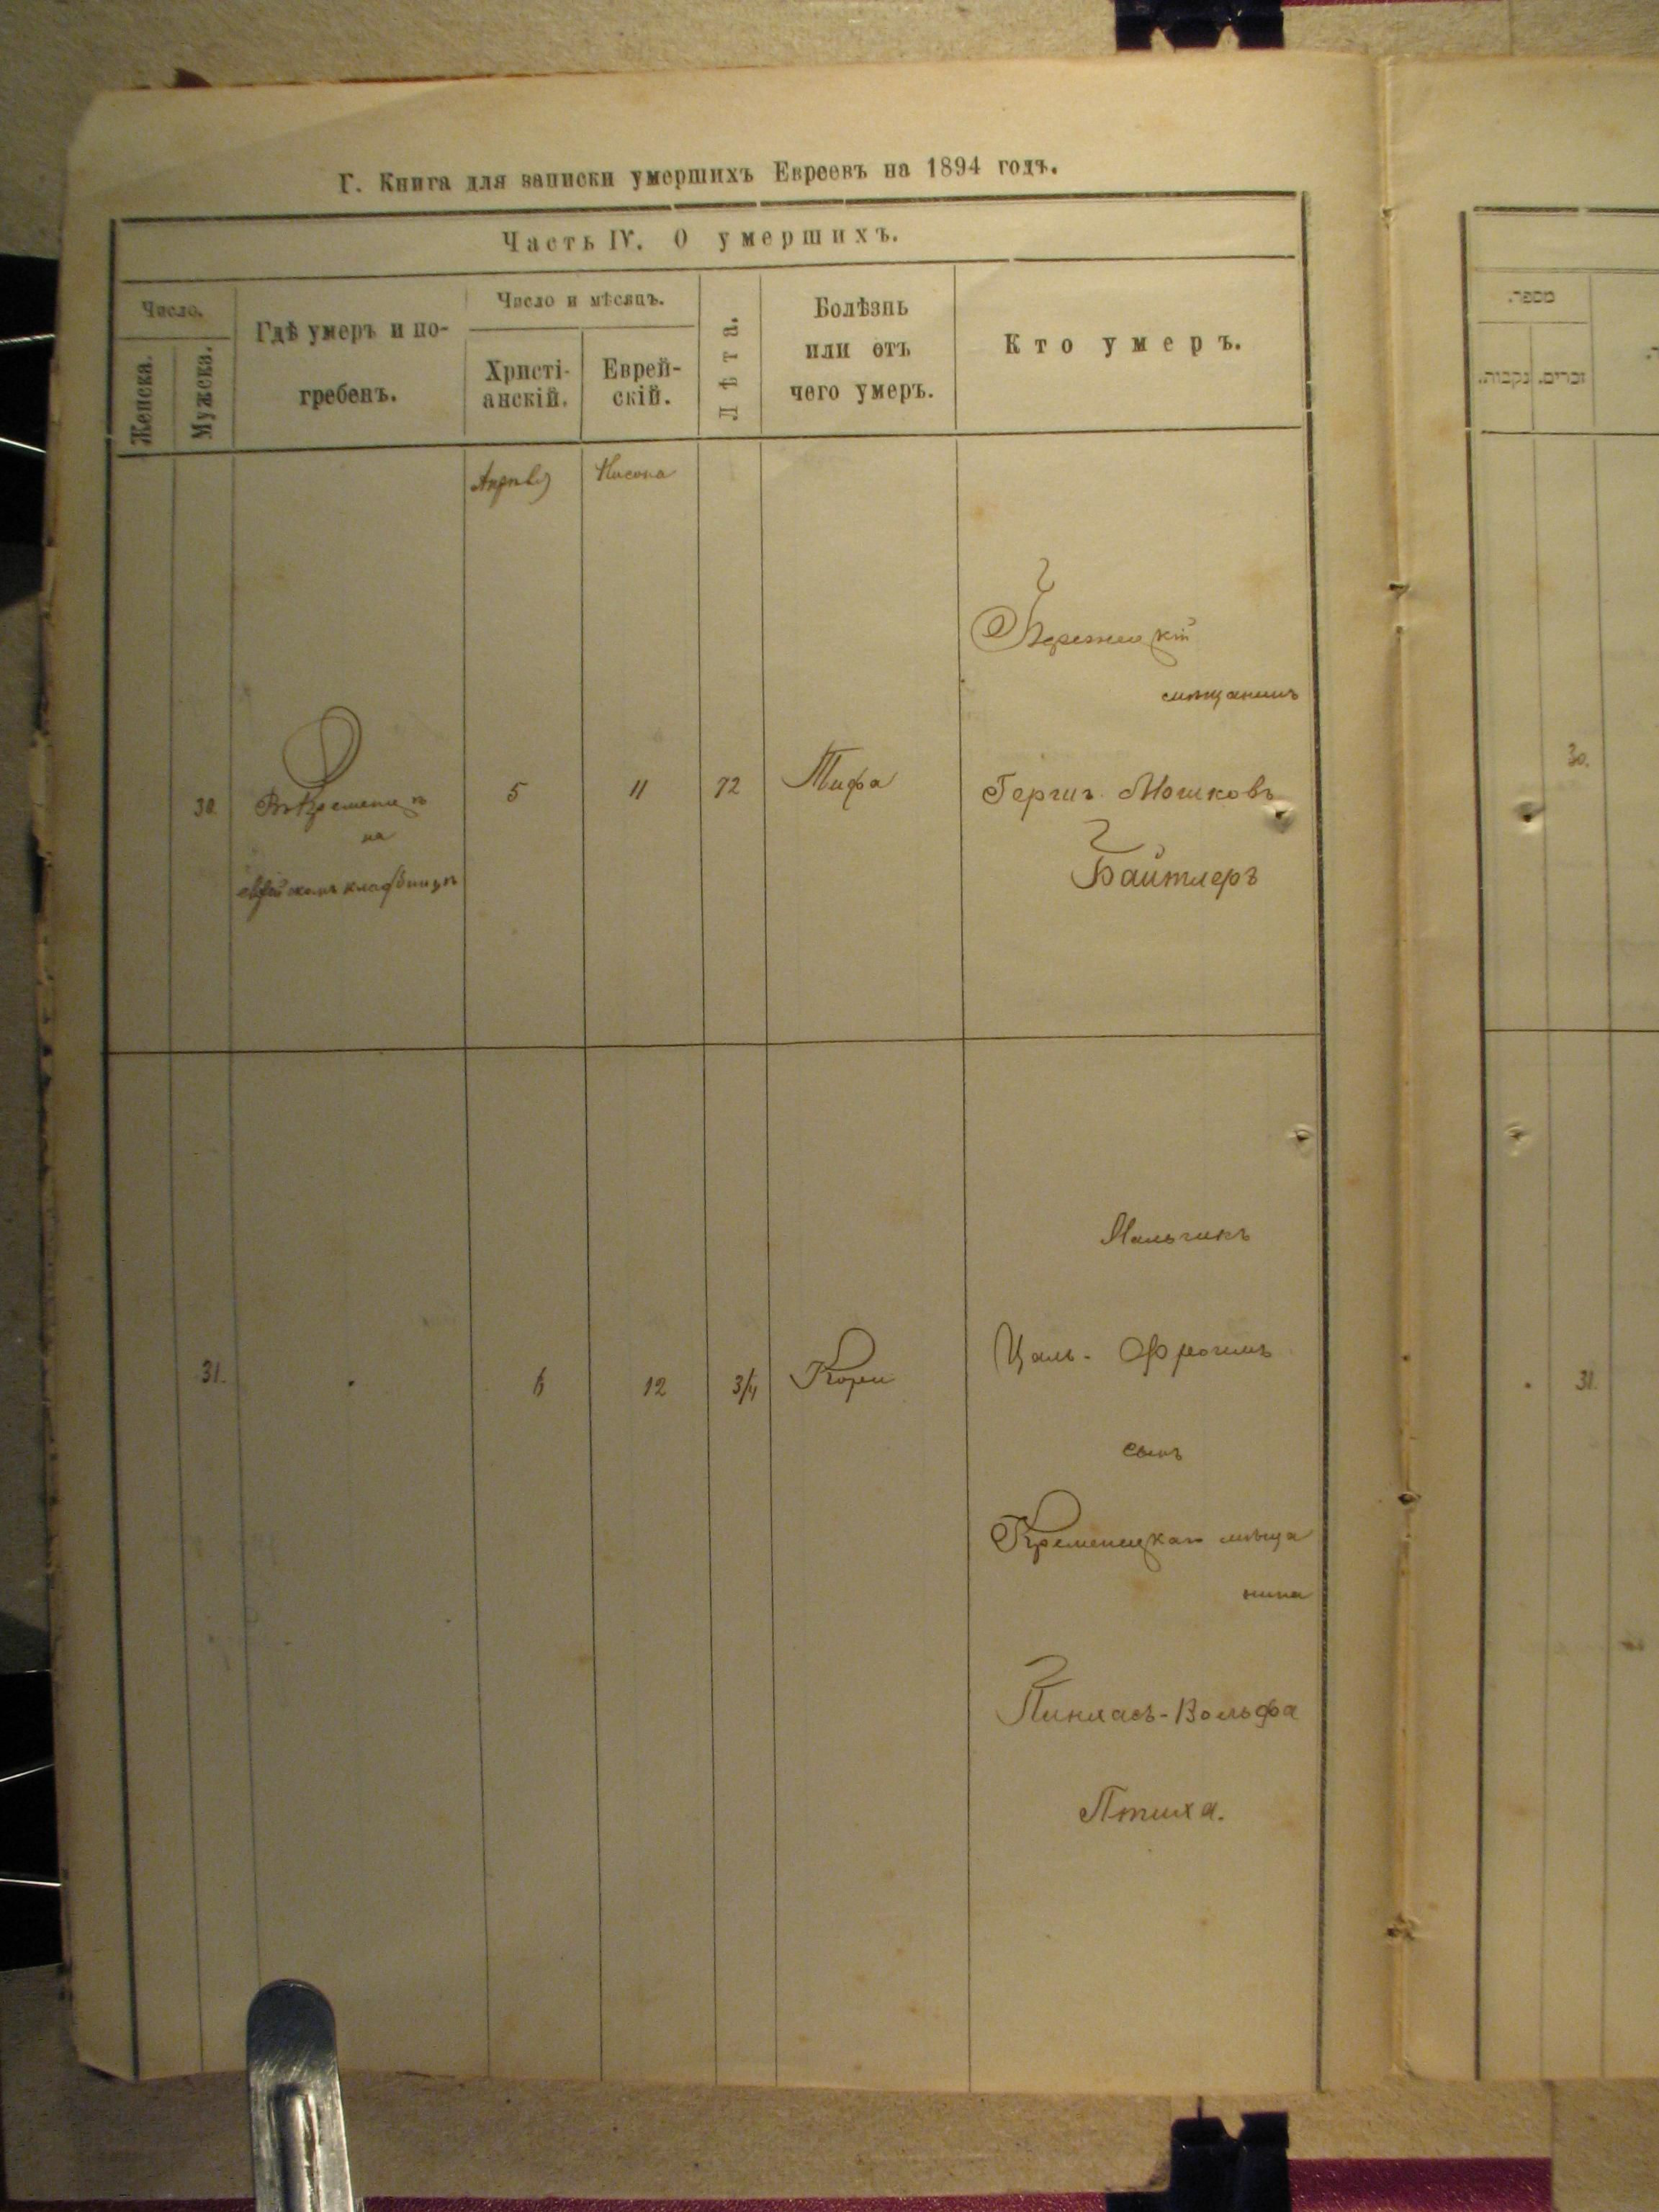 Г. Книга для записки умершихъ Евреевъ на 1894 годъ.
Часть IV. О умершихъ.
Число.
Женска.
Мужска.
Гдѣ умеръ и по-
гребенъ.
Число и мѣсяцъ.
Христі-
анскій.
Еврей-
скій.
Лѣта.
Болѣзнь
или отъ
чего умеръ.
Кто умеръ.
Апрѣля
Нисона
30.
Въ Кременцѣ
на
еврейскомъ кладбищѣ
5
11
72
Тифа
мѣщанинъ
Гершъ Мошковъ
Байтлеръ
31.
6
12
3/4
Кори
Мальчикъ
Цаль-Фроимъ
сынъ
Кременецкаго мѣща
нина
Пинхасъ-Вольфа
Птиха.
מספר.
זכרים.
נקבות.
30.
31.